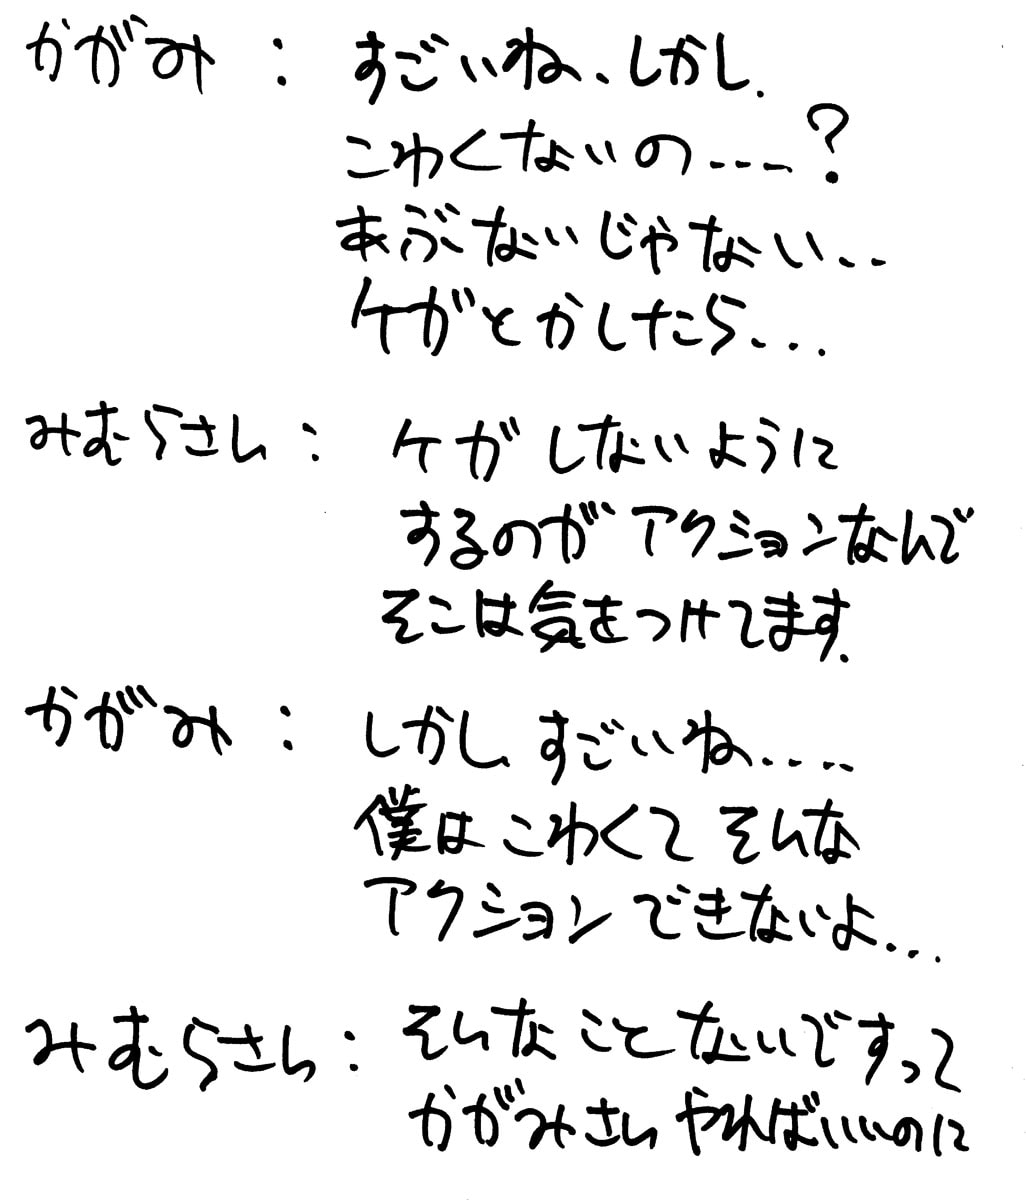 かがみ : すごいね、しかし.
こわくないの---?
あぶないじゃない..
ケガとかしたら...
みむらさん : ケガしないように
するのがアクションなんで
そこは気をつけてます.
かがみ : しかし、すごいね....
僕はこわくてそんな
アクションできないよ...
みむらさん : そんなことないですって
かがみさんやればいいのに